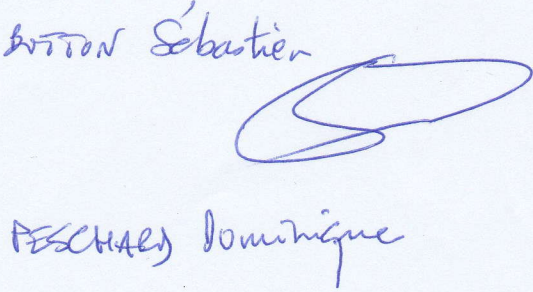 BOTTON Sébastien
PESCHARD Dominique